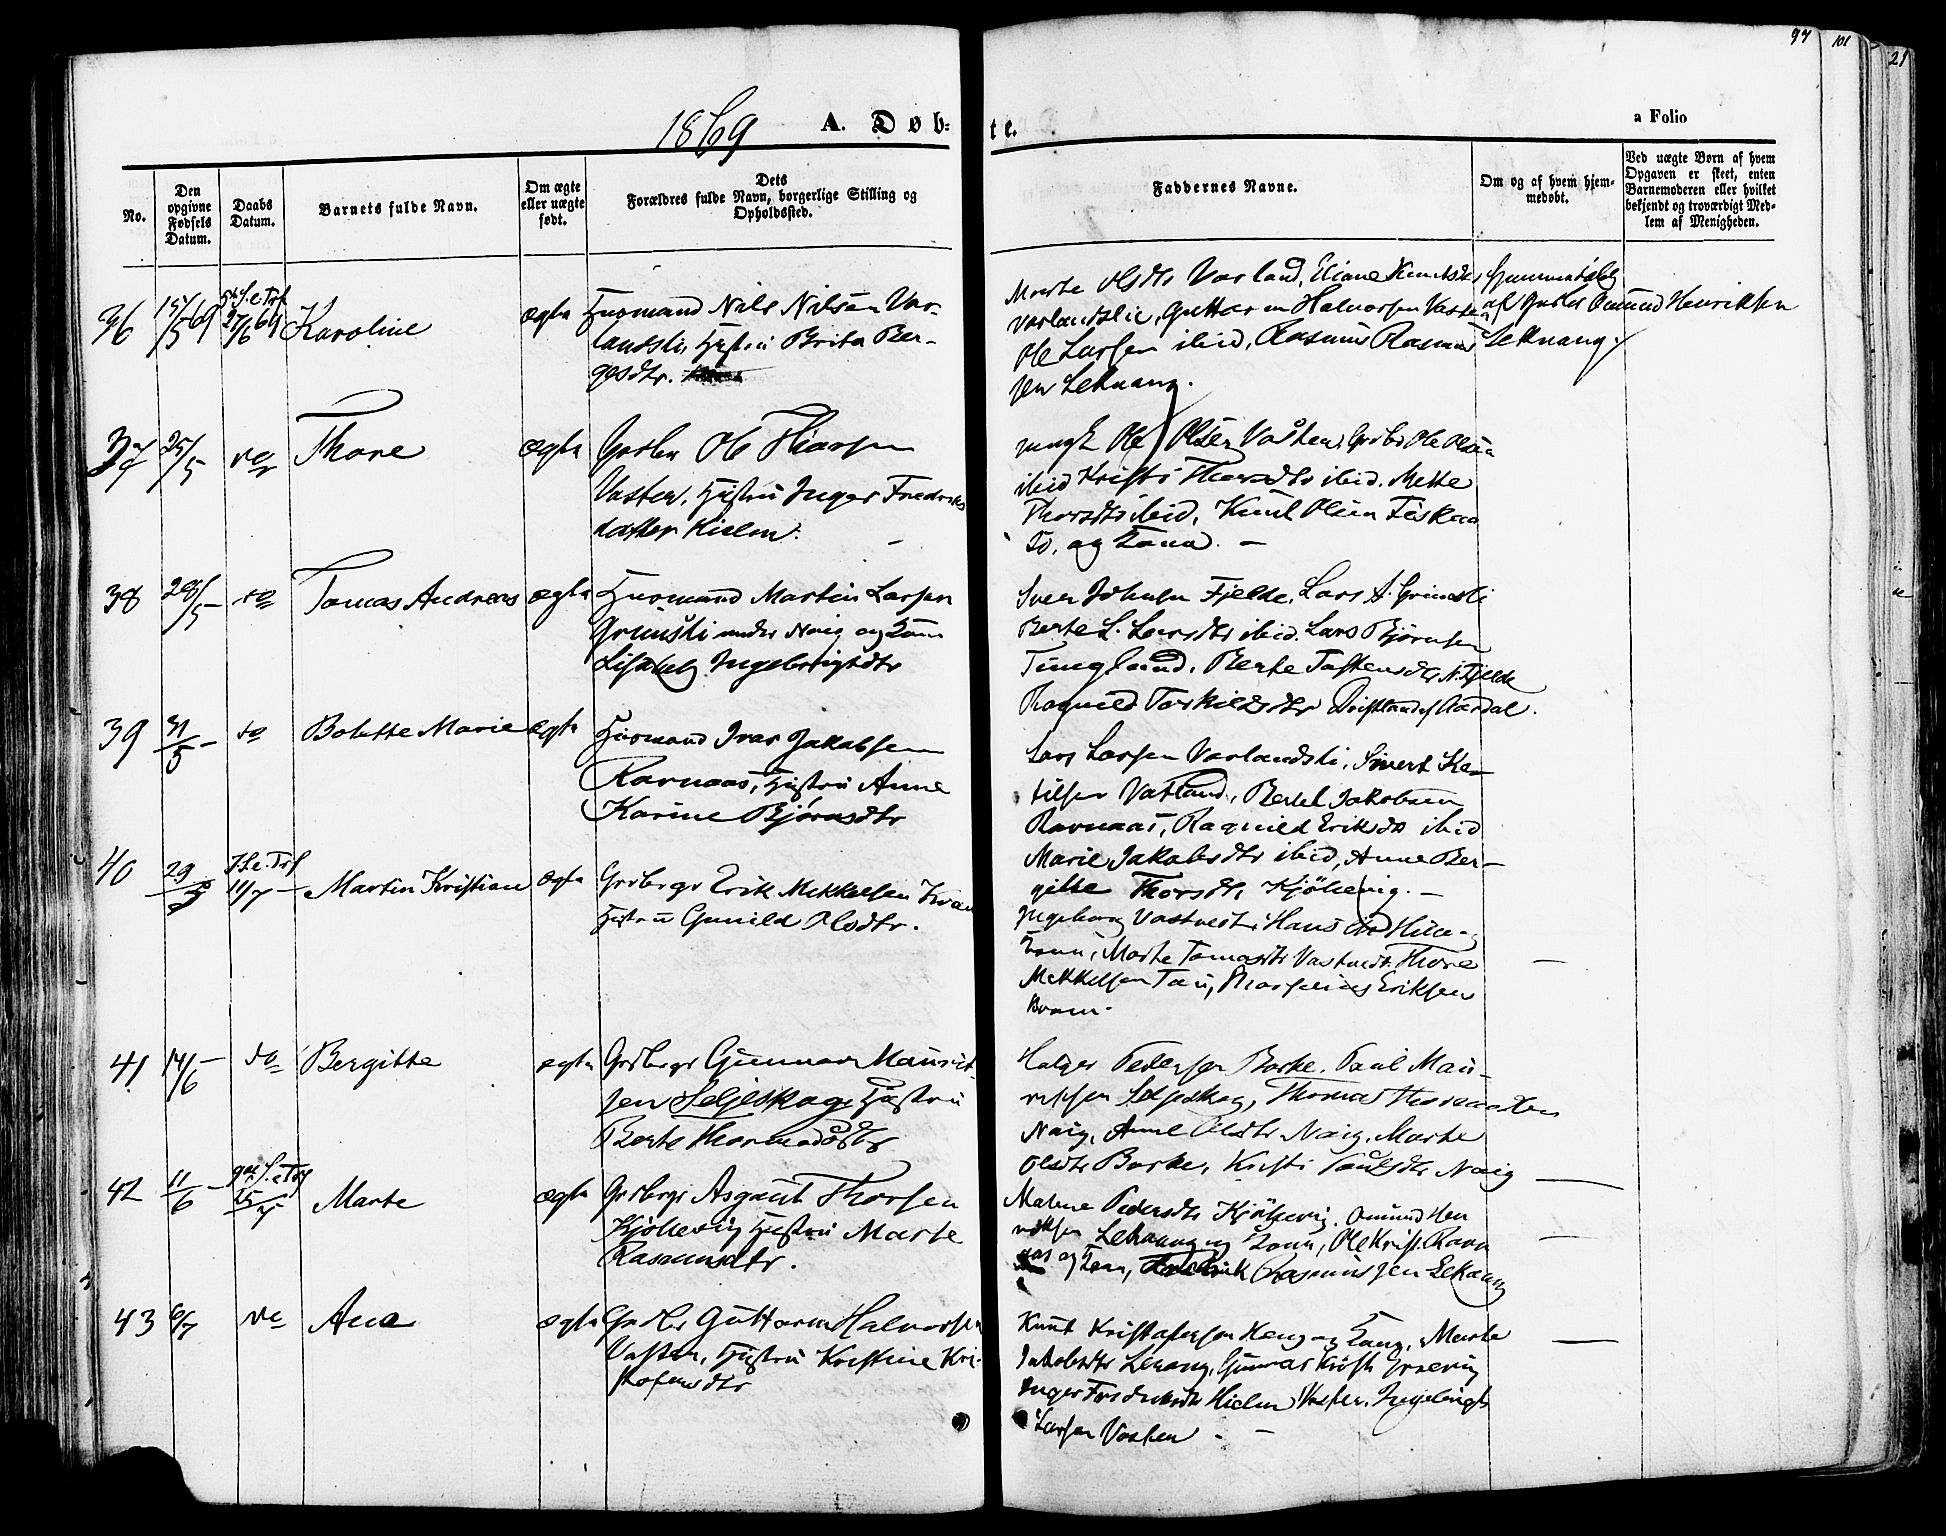 97 101 21
1869 A. Døb-
te.
a Folio
No.
Den opgivne Fødsels Datum.
Daabs Datum.
Barnets fulde Navn.
Om ægte eller uægte født.
Dets Forældres fulde Navn, borgerlige Stilling og Opholdssted.
Faddernes Navne.
Om og af hvem hjem-
medøbt.
Ved uægte Børn af hvem
Opgaven er skeet, enten
Barnemoderen eller hvilket
bekjendt og troværdigt Med-
lem af Menigheden.
36 15/5 69 5te S. e. Trf 27/6 69 Karoline ægte Huusmand Nils Nilsen Var-
landsli, Hustru Brita Ber-
gesdtr.
Marte Olsdtr Varland, Eliane Knutsdtr
Varlandslie, Guttorm Halvorsen Vasten
Ole Larsen ibid, Rasmus Rasmus
sen Leknang.
Hjemmedøbt
af Gaslr Omund Henriksen
Leknang.
37 25/5 do Thore ægte Ole Thorsen
Vasten, Hustru Inger Fredriks
datter Hielm.
Ungk Ole Olsen Vasten, Grbr Ole Olsen
ibid Kristi Thorsdtr ibid. Mette
Thorsdtr ibid, Knut Olsen Fiskaa
To, og Kona. -
38 28/5 - do Tomas Andreas ægte Huusmand Martin Larsen
Grimsli under Naig og Kone
Lisabet Ingebrigtdtr
Sven Johnsen Fjelde, Lars A. Grimsli
Berte L. Larsdtr ibid. Lars Bjørnsen
Tungland, Berte Tostensdtr N. Fjelde
Ragnild Torkildsdtr Tveitland af Aardal.
39 31/5 - do Bolette Marie ægte Huusmand Ivar Jakobsen
Ravnaas, Hustru Anne
Karine Bjørnsdtr
Lars Larsen Varlandsli, Sivert Ke-
tilsen Vatland, Bertel Jakobsen
Ravnaas, Ragnild Eriksdtr ibid
Marie Jakobsdtr ibid, Anne Ber-
gitte Thorsdtr Kjølevig. -
40 29/5 7 S. e. Trf 11/7 - Martin Kristian ægte Grdbrgr Erik Mikkelsen Kvam
Hustru Gunild Olsdtr.
Ingeborg Vastvedt, Hans
Marte Tomasdtr Vastvedt. Thore
Mikkelsen Tau, Eriksen
Kvam.
41 14/6 - do Bergitte ægte Grdbrgr Gunnar Maurit-
sen Seljeskog, Hustru
Berte Thormodsdtr
Holger Pedersen Barke. Paul Mau-
ritsen Seljeskog, Thomas
Naig, Anne Olsdtr Naig. Marte
Olsdtr Barke, Kristi Paulsdtr Naig
42 11/6 - 9de S. e. Trf 25/7 Marte ægte Grdbrgr Asgaut Thorsen
Kjølevig Hustru Marte
Rasmusdtr.
Malene Pedersdtr Kjølevig. Omund Hen
riksen Leknang og Kone, Ole Krist. Ravn
aas og Kone, Fredrik Rasmussen Leknang
43 6/7 do Ane ægte Guttorm Halvorsen
Vasten, Hustru Kristine Kri-
stofersdtr
Knut Kristofersen Heng og Kone, Marte
Jakobsdtr Leknang, Gunnar
Inger Fredriksdtr Hielm Vasten, Ingebrigt
Larsen Vasten -